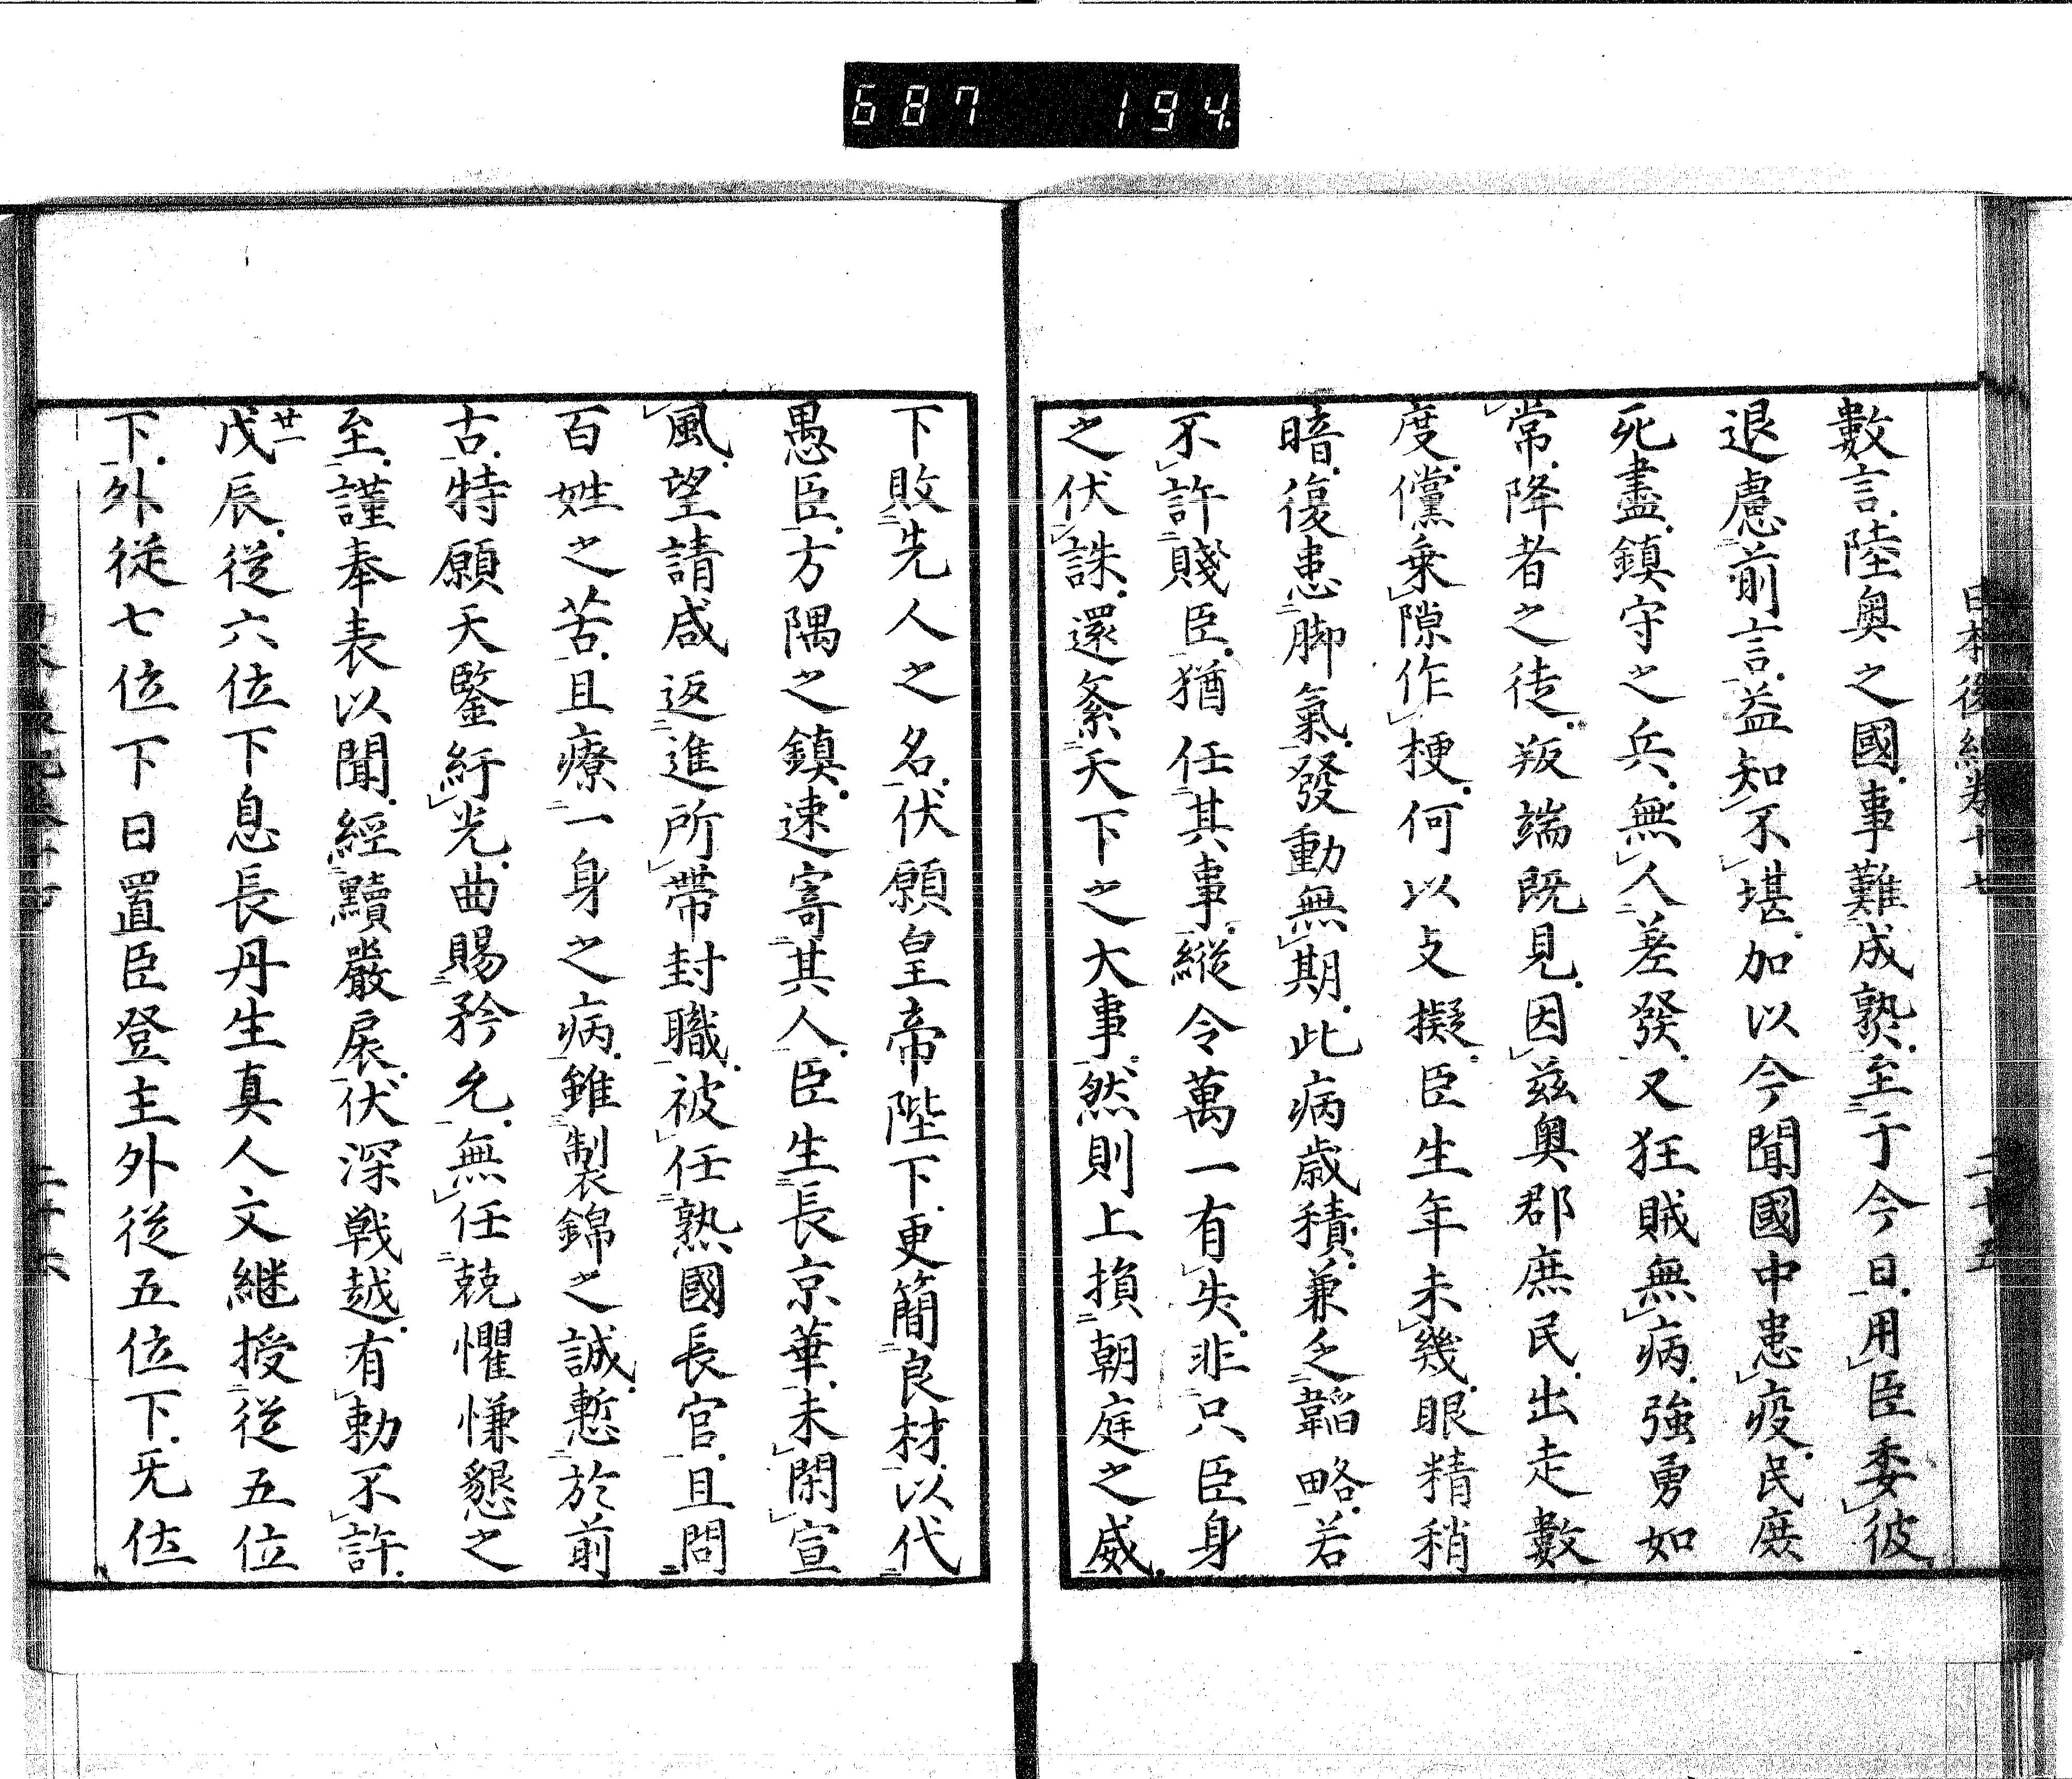 687 194
日本後紀卷十七 二十五
數言陸奥之國事難成熟至于今日用臣委彼
退慮前言益知不堪加以今聞國中患疫民庶
死盡鎮守之兵無人差發又狂賊無病強勇如
常降者之徒叛端既見因茲奥郡庶民出走數
度儻乗隙作梗何以支擬臣生年未幾眼精稍
暗復患脚氣發動無期此病歳積兼乏韜略若
不許賤臣猶任其事縦令萬一有失非只臣身
之伏誅還紊天下之大事然則上損朝庭之威
下敗先人之名伏願皇帝陛下更簡良材以代
愚臣方隅之鎮速寄其人臣生長京華未閑宣
風望請咸返進所帶封職被任熟國長官且問
百姓之苦且療一身之病雖製錦之誠慙於前
古特願天鑒紆光曲賜矜允無任兢懼慊懇之
至謹奉表以聞經黷嚴扆伏深戦越有勅不許
廿一
戊辰從六位下息長丹生真人文継授從五位
下外從七位下日置臣登主外從五位下无位